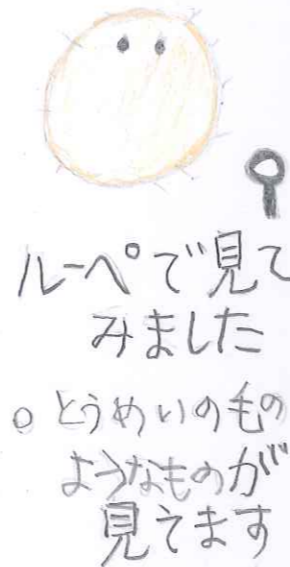 ルーペで見て
みました
○とうめいのもの
ようなものが
見てます